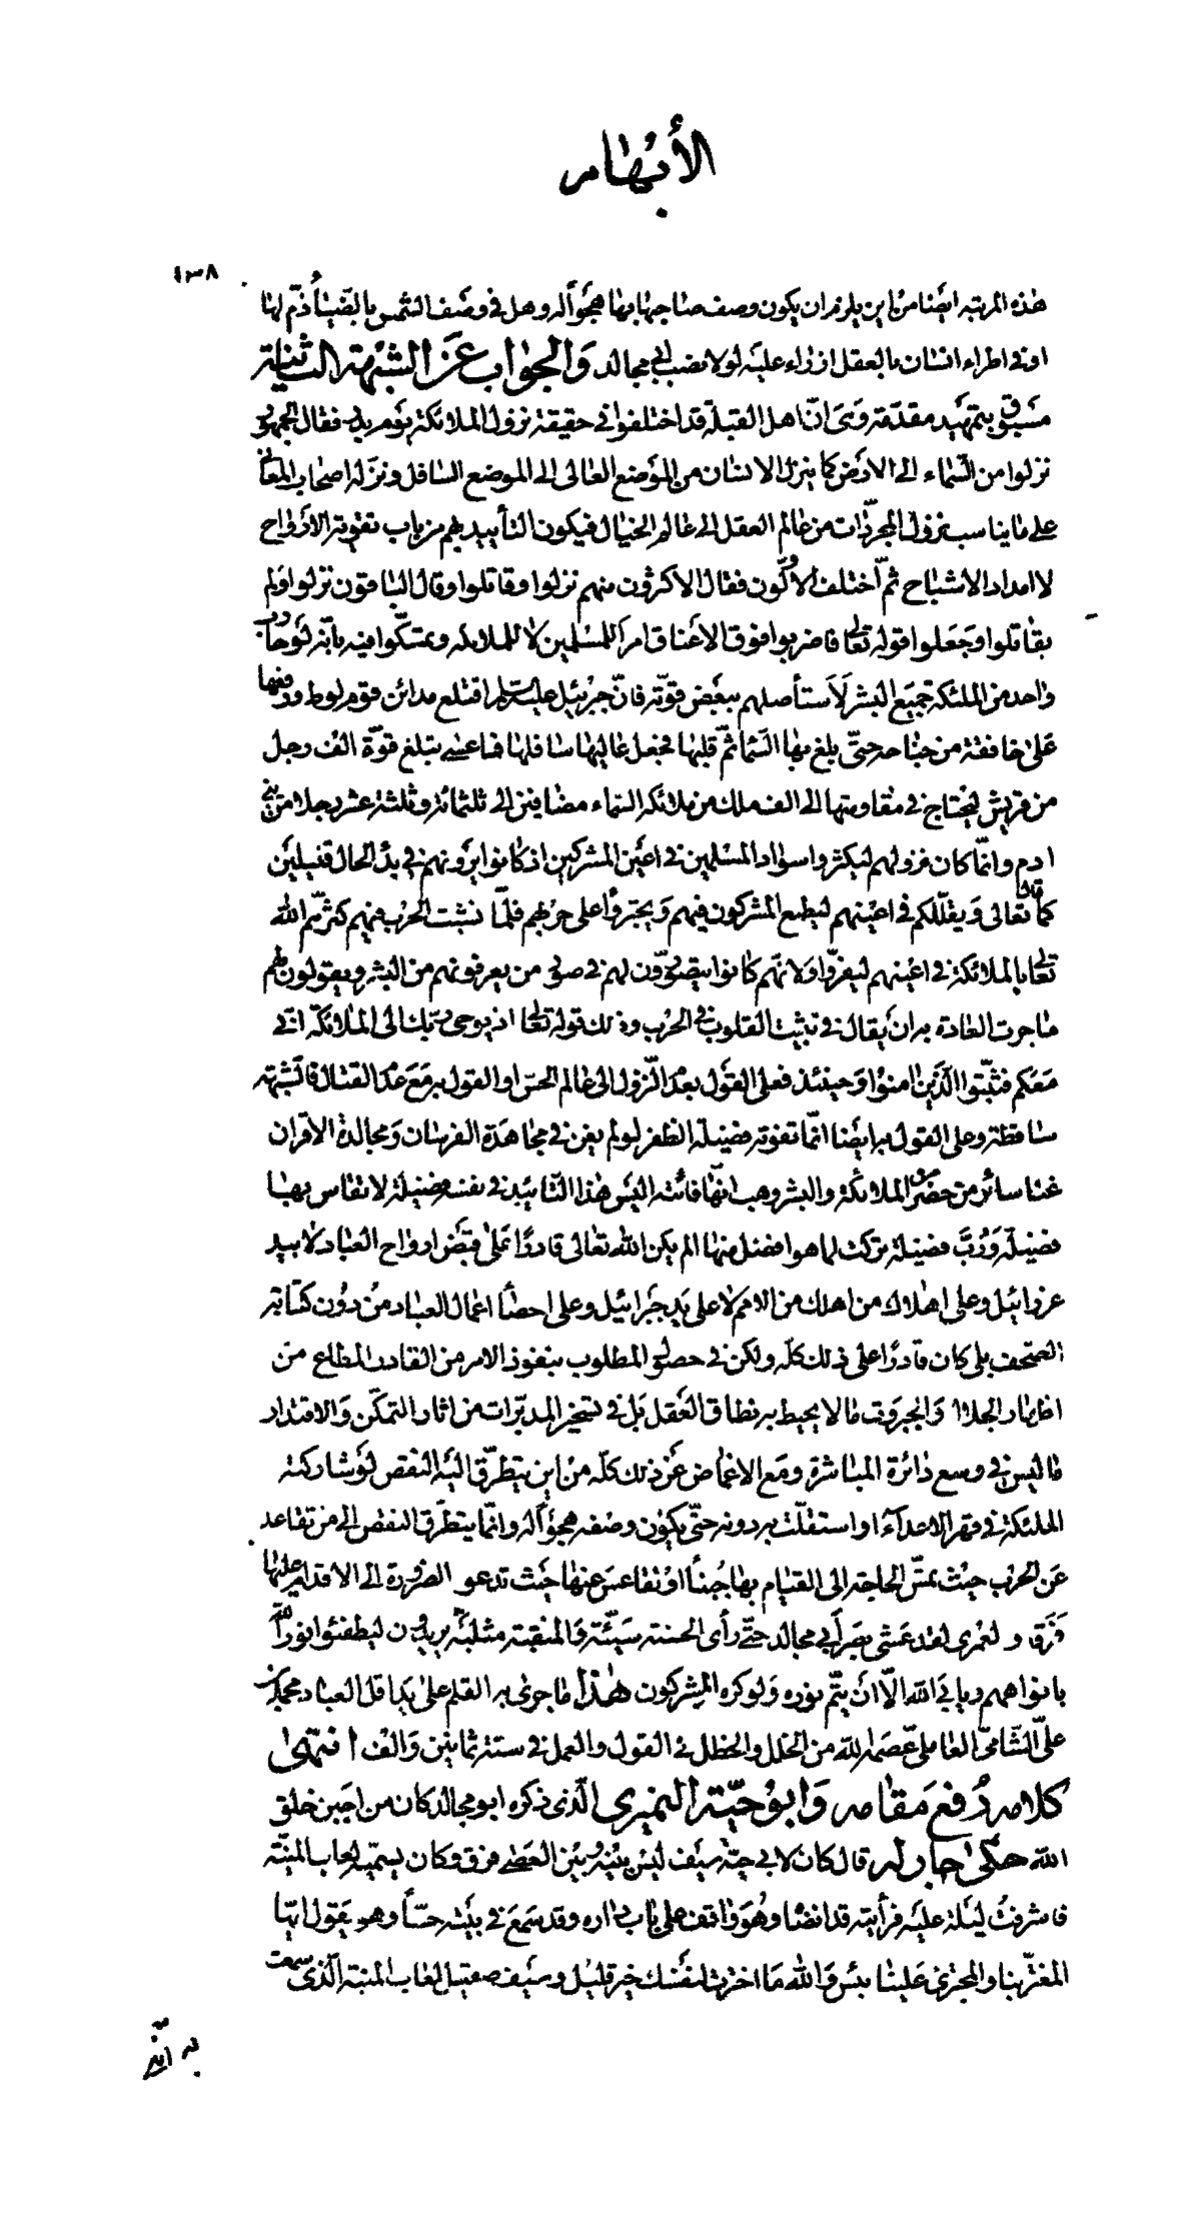 الأبهام
١٣٨
هذه المرتبه ايضا من اين يلزم ان يكون وصف صاحبها بها هجوا له وهل في وصف الشمس بالضياء ذم لها
او في اطراء انسان بالعقل ازراء عليه لولا نصب ابي مجالد والجواب عن الشبهة الثانية
مسبوق بتمهيد مقدمة وهي ان اهل القبلة قد اختلفوا في حقيقة نزول الملائكة يوم بدر فقال الجمهور
نزلوا من السماء الى الارض كما ينزل الانسان من الموضع العالى الى الموضع السافل ونزله اصحاب المعاني
على ما يناسب نزول المجردات من عالم العقل الى عالم الخيال فيكون التأييد بهم من باب تقوية الارواح
لا امداد الاشباح ثم اختلف الاولون فقال الاكثرون منهم نزلوا وقاتلوا وقال الباقون نزلوا ولم
يقاتلوا وجعلوا قوله تعالى فاضربوا فوق الاعناق امرا للمسلمين لا للملائكه وتمسكوا فيه بانه لو حارب
واحد من الملئكة جميع البشر لاستأصلهم ببعض قوته فان جبرئيل عليه السلم اقتلع مدائن قوم لوط ورفعها
على خافقة من جناحه حتى بلغ بها السما ثم قلبها فجعل عاليها سافلها فما عسى يبلغ قوة الف رجل
من قريش ليحتاج في مقاومتها الى الف ملك من ملائكه السماء مضافين الى ثلثمائة وثلثة عشر رجلا من بني
ادم وانما كان نزولهم ليكثروا سواد المسلمين في اعين المشركين اذ كانوا يرونهم في بدء الحال قليلين
كما قال تعالى ويقللكم في اعينهم ليطمع المشركون فيهم ويجترؤا على حربهم فلما نشبت الحرب بينهم كثرهم الله
تعالى بالملائكة في اعينهم ليفروا ولانهم كانوا يتصورون لهم في صور من يعرفونهم من البشر ويقولون لهم
ما جرت العادة به ان يقال في تثبيت القلوب في الحرب وذلك قوله تعالى اذ يوحى ربك الى الملائكة اني
معكم فثبتوا الذين امنوا وحينئذ فعلى القول بعدم النزول الى عالم الحس او القول به مع عدم القتال فالشبهة
ساقطة وعلى القول به ايضا انما تفوته فضيلة الظفر لو لم يغن في مجاهدة الفرسان ومجالدة الاقران
غنا سائر من حضر من الملائكة والبشر وهب انها فاتته اليس هذا التأييد في نفسه فضيلة لا تقاس بها
فضيلة ورب فضيلة تركت لما هو افضل منها الم يكن الله تعالى قادرا على قبض ارواح العباد لا بيد
عزرائيل وعلى اهلاك من اهلك من الامم لا على يد جبرائيل وعلى احصا اعمال العباد من دون كتابة
الصحف بلى كان قادرا على ذلك كله ولكن في حصول المطلوب بنفوذ الامر من القادر المطاع من
اظهار الجلال والجبروت ما لا يحيط به نطاق العقل بل في تسخير المدبرات من اثار التمكن والاقتدار
ما ليس في وسع دائرة المباشرة ومع الاغماض عن ذلك كله من اين يتطرق اليه النقص لو شاركته
الملئكة في قهر الاعداء او استقلت به دونه حتى يكون وصفه هجوا له وانما يتطرق النقص الى من تقاعد
عن الحرب حيث تمس الحاجة الى القيام بها جبنا او تقاعس عنها حيث تدعو الضرورة الى الاقدام عليها
فرقا ولعمرى لقد عشى بصر ابي مجالد حتى رأى الحسنة سيئة والمنقبة مثلبة يريدون ليطفئوا نور الله
بافواههم ويابى الله الا ان يتم نوره ولو كره المشركون هذا ما جرى به القلم على يد اقل العباد محمد بن
على الشامى العاملى عصمه الله من الخلل والخطل في القول والعمل في سنة ثمانين والف انتهى
كلامه رفع مقامه وابو حية النميرى الذى ذكره ابو مجالد كان من اجبن خلق
الله حكى جار له قال كان لابي حية سيف ليس بينه وبين العصى فرق وكان يسميه لعاب المنية
فاشرفت ليلة عليه فرأيته قد انتضا وهو واقف على باب داره وقد سمع في بيته حسا وهو يقول ايها
المغتر بنا والمجترئ علينا بئس والله ما اخترت لنفسك خير قليل وسيف صقيل لعاب المنية الذى سمعت
به